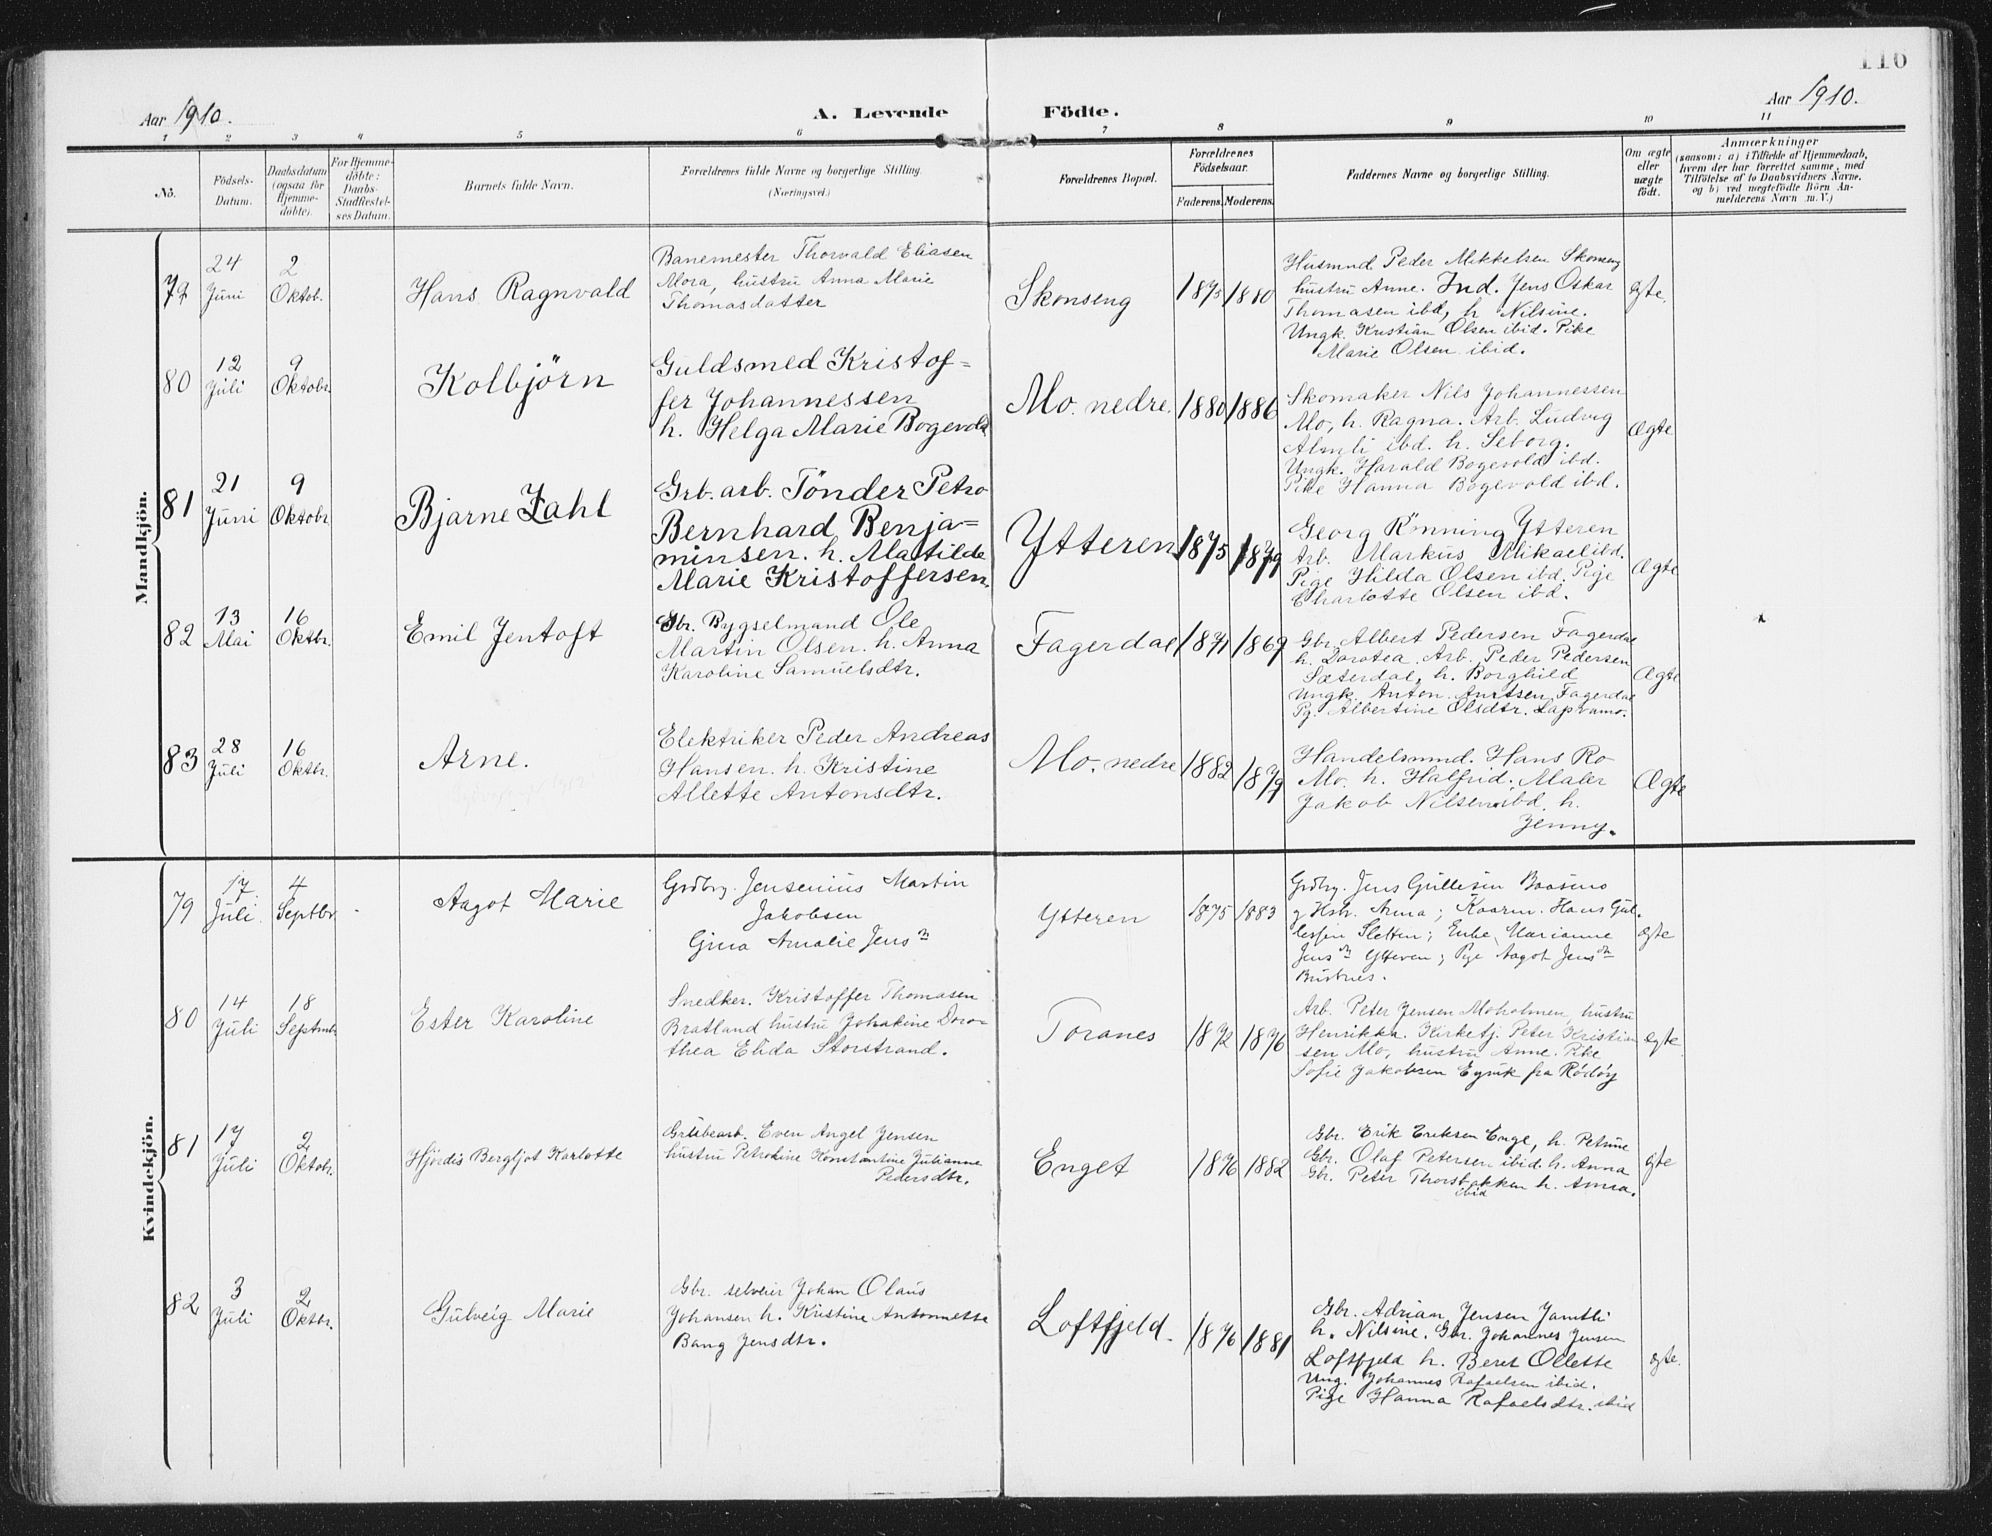 116
Aar 1910.
A. Levende
Födte.
Aar 1910.
1 2 3 4 5 6 7 8 9 10 11
No.
Födsels-
Datum.
Daabsdatum
(ogsaa for
Hjemme-
döbte).
For Hjemme-
döbte:
Daabs-
Stadfæstel-
ses Datum.
Barnets fulde Navn.
Forældrenes fulde Navne og borgerlige Stilling.
(Næringsvei.)
Forældrenes Bopæl.
Forældrenes
Födselsaar.
Faderens. Moderens.
Faddernes Navne og borgerlige Stilling.
Om ægte
eller
uægte
födt.
Anmærkninger
(saasom: a) i Tilfælde af Hjemmedaab,
hvem der har forrettet samme, med
Tilföielse af to Daabsvidners Navne.
og b) ved uægtefödte Börn An-
melderens Navn m. V.)
Mandkjön.
79
24
Juni
2
Oktob.
Hans Ragnvald
Banemester Thorvald Eliasen
Mora, hustru Anna Marie
Thomasdatter
Skonseng
1875
1880
Husmnd Peder Mikkelsen Skonseng
hustru Anne. Ind. Jens Oskar
Thomasen ibd, h Nilsine.
Ungk. Kristian Olsen ibid. Pike
Marie Olsen ibid.
ægte.
80
12
Juli
9
Oktobr.
Kolbjörn
Guldsmed Kristof=
fer Johannessen
h. Helga Marie Bogevold
Mo. nedre.
1880
1886
Skomaker Nils Johannessen
Mo, h. Ragna. Arb. Ludvig
Almli ibd. h. Seborg.
Ungk. Harald Bogevold ibd.
Pike Hanna Bogevold ibd.
Ægte
81
21
Juni
9
Oktobr
Bjarne Zahl
Grb. arb. Tönder Petro
Bernhard Benja=
minsen. h. Matilde
Marie Kristoffersen.
Ytteren
1875
1879
Georg Rønning Ytteren
Arb. Markus Mikael ibd.
Pige Hilda Olsen ibd. Pige
Charlotte Olsen ibd.
Ægte
82
13
Mai
16
Oktbr.
Emil Jentoft
Gbr. Bygselmand Ole
Martin Olsen. h. Anna
Karoline Samuelsdtr.
Fagerdal
1871
1869
Gbr. Albert Pedersen Fagerdal
h. Dorotea. Arb. Peder Pedersen
Sæterdal, h. Borghild
Ungk. Anton Fagerdal
Pg. Albertine Olsdtr.
Ægte
83
28
Juli
16
Oktbr.
Arne.
Elektriker Peder Andreas
Hansen. h. Kristine
Allette Antonsdtr.
Mo. nedre
1882
1879
Handelsmnd. Hans Ro-
Mo. h. Halfrid. Maler
Jakob Nilsen ibd. h.
Jenny.
Ægte
Kvindekjön.
79
17
Juli
4
Septbr
Aagot Marie
Grdbrg. Jensenius Martin
Jakobsen
Gina Amalie Jensn
Ytteren
1875
1883
Grdbrg. Jens Gullesen Baasmo
g Hstr. Anna; Kaarm. Hans Gul-
lesen Sletten; Enke Marianne
Jensdn Ytteren; Pige Aagot Jensdn
Bustnes.
ægte
80
14
Juli
18
Septmbr
Ester Karoline
Snedker. Kristoffer Thomasen
Bratland hustru Johakine Doro-
thea Elida Storstrand.
Toranes
1872
1876
Arb. Peter Jensen Moholmen, hustru
Henrikka. Kirketj. Peter Kristian
sen Mo, hustru Anne. Pike
Sofie Jakobsen fra Rödöy
ægte
81
17
Juli
2
Oktobr.
Hjördis Bergljot Karlotte
Grubearb. Even Angel Jensen
hustru Petrokine Konstantine Julianne
Pedersdtr.
Enget
1876
1882
Gbr. Erik Eriksen Enge, h. Petrine
Gbr. Olaf Petersen ibid. h. Anna
Gbr. Peter Thorsbakken h. Anna.
ibid
ægte
82
3
Juli
2
Oktbr.
Gulveig Marie
Gbr. selveier Johan Olaus
Johansen h. Kristine Antonnette
Bang Jensdtr.
Loftfjeld.
1876
1881
Gbr. Adrian Jensen Jamtli
h. Nilsine. Gbr. Johannes Jensen
Loftfjeld h. Beret Ollette
Ung. Johannes Rafaelsen ibid.
Pige Hanna Rafaelsdtr. ibid
ægte.